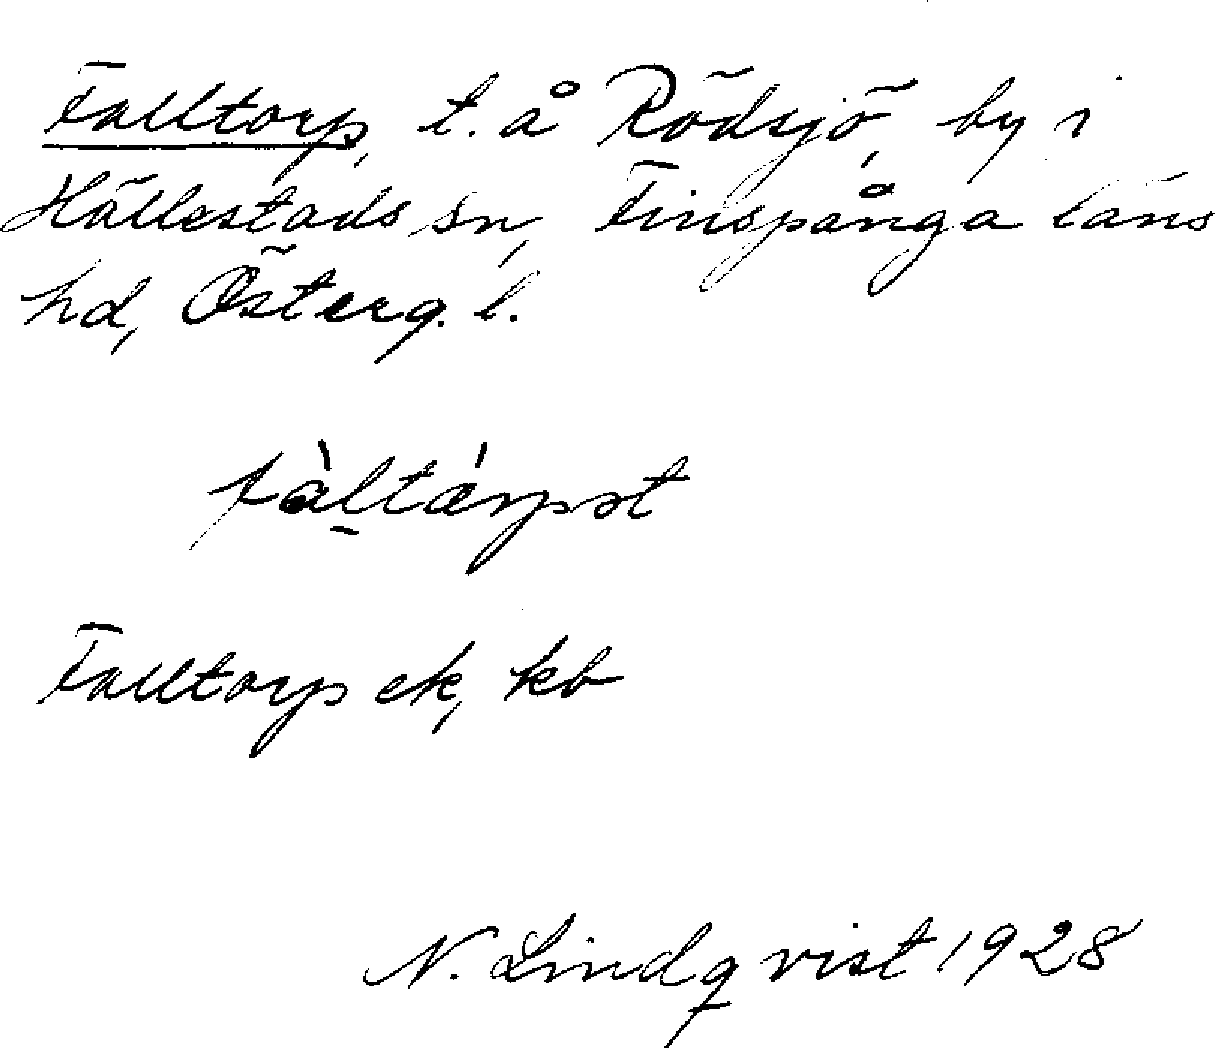 Falltorp, t. å Rödsjö, by i
Hällestads sn, Finspånga läns
hd, Österg. l.
fàltárpət
Falltorp ek, kb
N. Lindqvist 1928